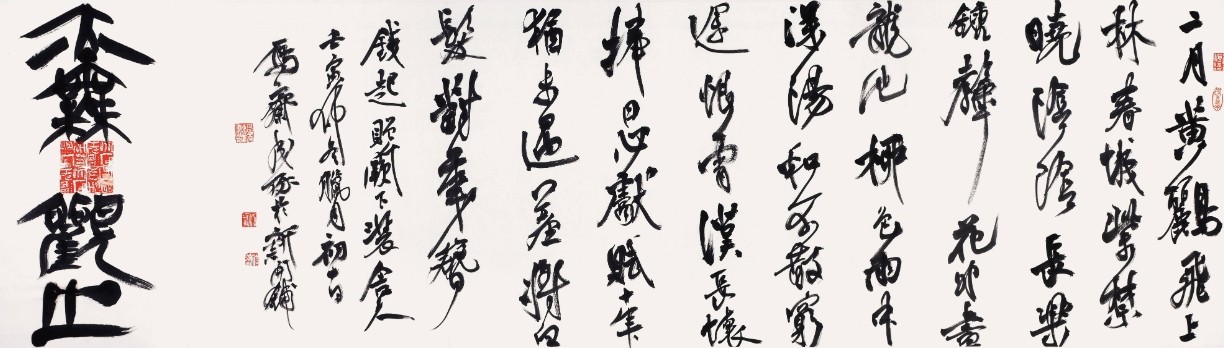 二月黃鸝飛上
林春城紫禁
曉陰陰長樂
鐘聲花外盡
龍池柳色雨中
深陽和不散窮
途恨霄漢長懷
捧日心獻賦十年
猶未遇羞將白
髮對華簪
錢起贈闕下裴舍人
壬寅仲冬臘月初十日
齋於
觀止